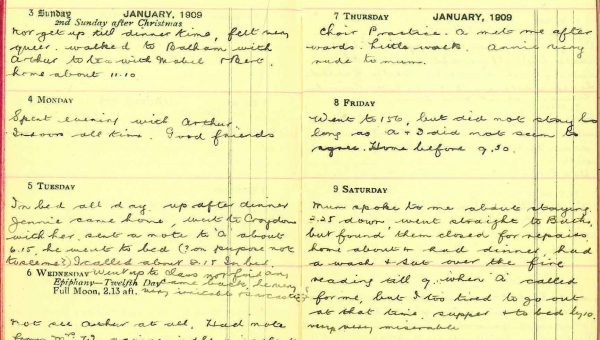 3 Sunday JANUARY, 1909
2nd Sunday after Christmas
Not get up till dinner time, felt very
queer. Walked to Balham with
Arthur to tea with Mabel & Bert.
home about 11.10
4 MONDAY
Spent evening with Arthur.
Indoors all time. Good friends
5 TUESDAY
In bed all day, up after dinner
Jennie came home, went to Croydon
with her. sent a note to A about
6.15, he went to bed (? on purpose not
to see me?) I called about 8.15 In bed.
6 WEDNESDAY Went up to class nor find any
Epiphany—Twelfth Day came back,
Full Moon, 2.13 aft. very irritable
Not see Arthur at all. Had note
from
7 THURSDAY JANUARY, 1909
Choir Practice. A met me after
wards. Little walk. Annie very
rude to mum.
8 FRIDAY
Went to 156, but did not stay
long as A & I did not seem to
agree. Home before 9.30.
9 SATURDAY
Mum spoke to me about staying
2.25 down went straight to Baths
but found them closed for repairs
home about 4 had dinner, had
a wash & sat over the fire
reading till 9. when A called
for me, but I too tired to go out
at that time. supper & to bed by 10.
very very miserable